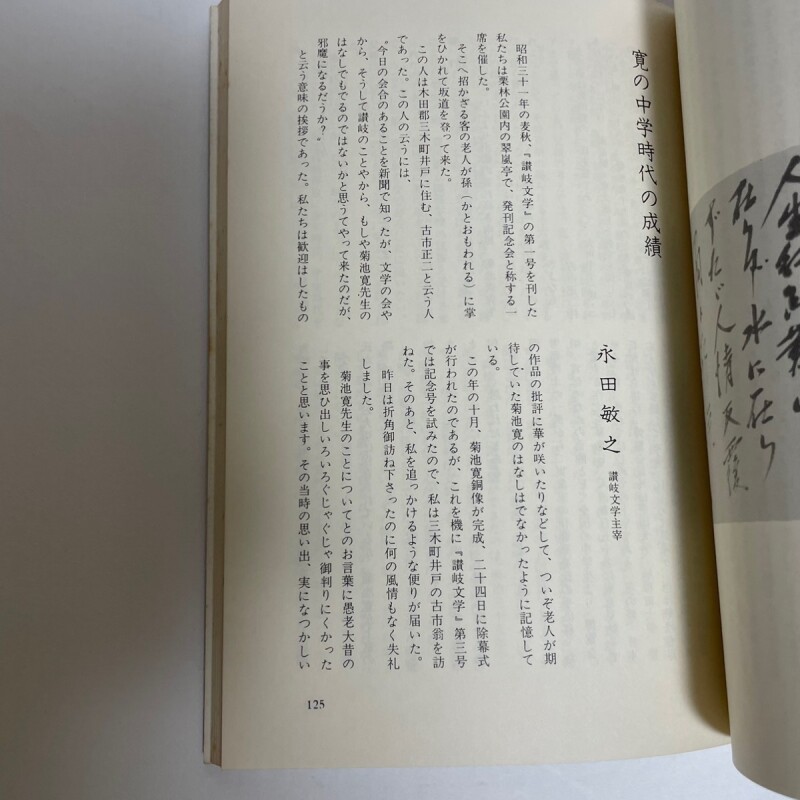 寛の中学時代の成績
永田敏之
讃岐文学主宰
昭和三十一年の麦秋、『讃岐文学』の第一号を刊した
私たちは栗林公園内の翠嵐亭で、発刊記念会と称する一
席を催した。
そこへ招かざる客の老人が孫（かとおもわれる）に掌
をひかれて坂道を登って来た。
この人は木田郡三木町井戸に住む、古市正二と云う人
であった。この人の云うには、
〝今日の会合のあることを新聞で知ったが、文学の会や
から、そうして讃岐のことやから、もしや菊池寛先生の
はなしでもでるのではないかと思うてやって来たのだが、
邪魔になるだうか？〟
と云う意味の挨拶であった。私たちは歓迎はしたもの
の作品の批評に華が咲いたりなどして、ついぞ老人が期
待していた菊池寛のはなしはでなかったように記憶して
いる。
この年の十月、菊池寛銅像が完成、二十四日に除幕式
が行われたのであるが、これを機に『讃岐文学』第三号
では記念号を試みたので、私は三木町井戸の古市翁を訪
ねた。そのあと、私を追っかけるような便りが届いた。
昨日は折角御訪ね下さったのに何の風情もなく失礼
しました。
菊池寛先生のことについてとのお言葉に愚老大昔の
事を思ひ出しいろいろぐじゃぐじゃ御判りにくかった
ことと思います。その当時の思い出、実になつかしい
125
在り
水に在り
人情